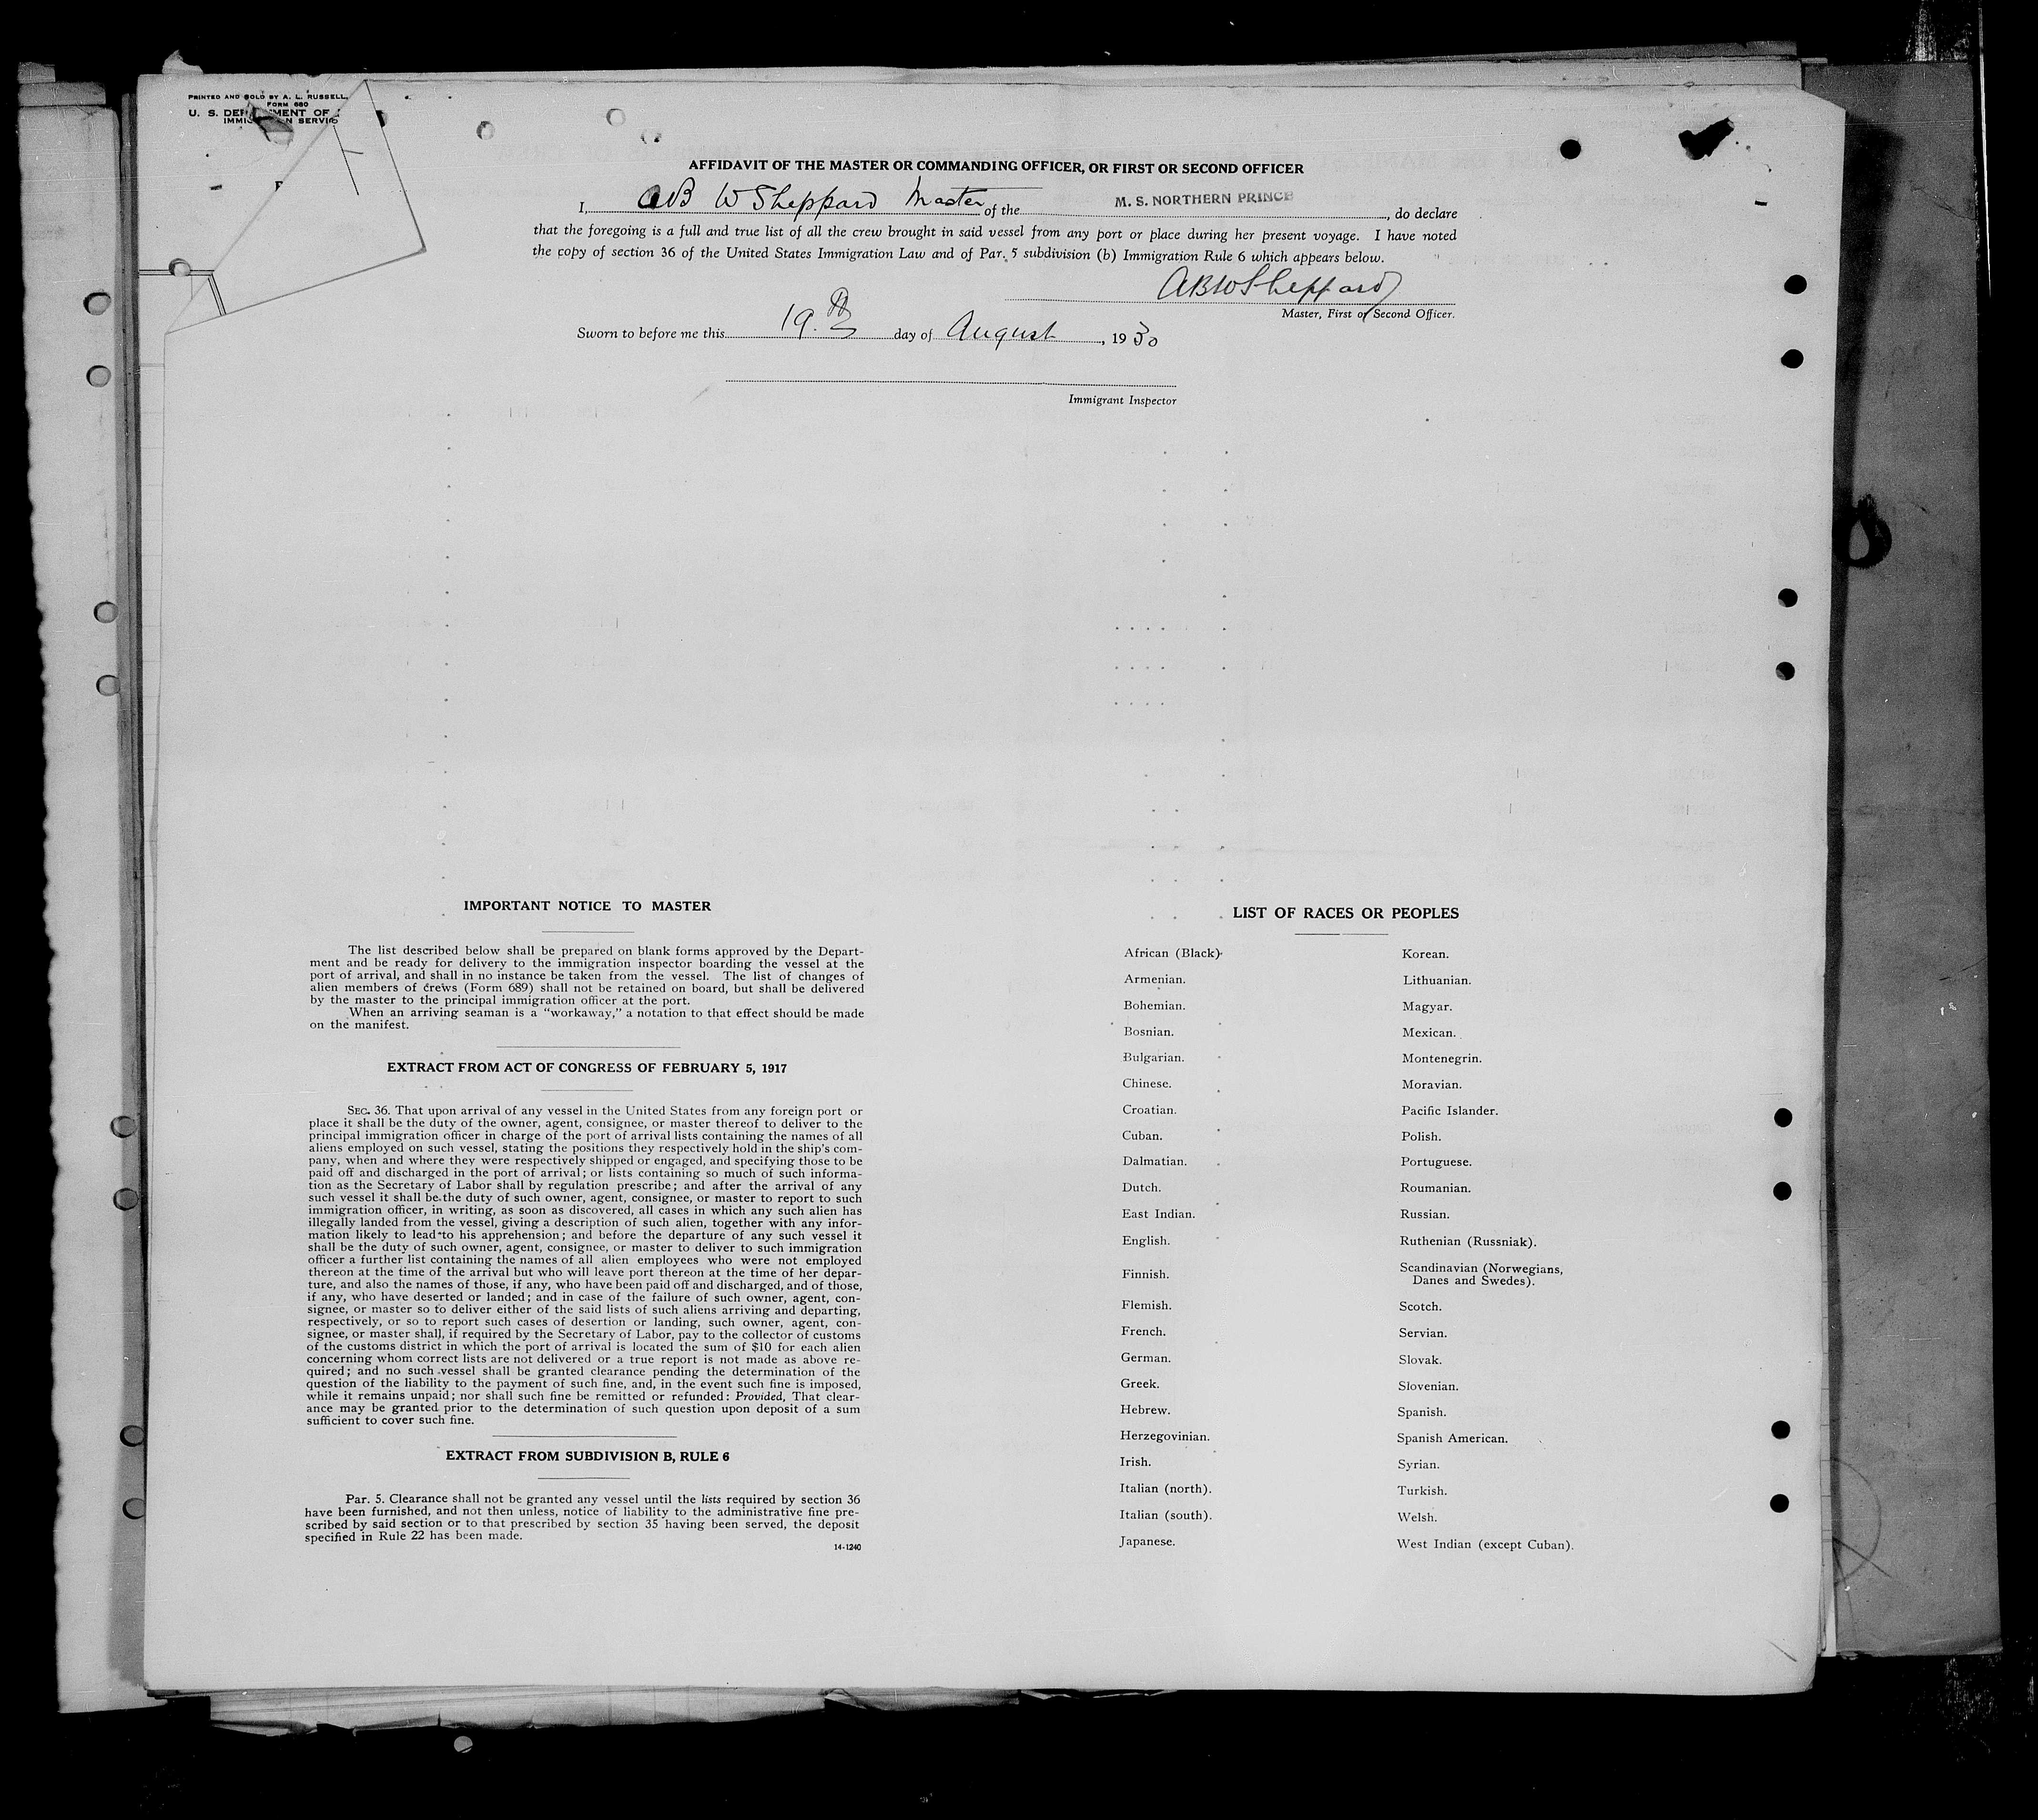 PRINTED AND SOLD BY A. L. RUSSELL,
FORM 680
U. S. DEPARTMENT OF
IMMIGRATION SERVICE
AFFIDAVIT OF THE MASTER OR COMMANDING OFFICER, OR FIRST OR SECOND OFFICER
I, AB W Sheppard Master of the M. S. NORTHERN PRINCE, do declare
that the foregoing is a full and true list of all the crew brought in said vessel from any port or place during her present voyage. I have noted
the copy of section 36 of the United States Immigration Law and of Par. 5 subdivision (b) Immigration Rule 6 which appears below.
ABW Sheppard
Master, First or Second Officer.
Sworn to before me this 19.th day of August, 1930
Immigrant Inspector
IMPORTANT NOTICE TO MASTER
The list described below shall be prepared on blank forms approved by the Depart-
ment and be ready for delivery to the immigration inspector boarding the vessel at the
port of arrival, and shall in no instance be taken from the vessel. The list of changes of
alien members of crews (Form 689) shall not be retained on board, but shall be delivered
by the master to the principal immigration officer at the port.
When an arriving seaman is a "workaway," a notation to that effect should be made
on the manifest.
EXTRACT FROM ACT OF CONGRESS OF FEBRUARY 5, 1917
SEC. 36. That upon arrival of any vessel in the United States from any foreign port or
place it shall be the duty of the owner, agent, consignee, or master thereof to deliver to the
principal immigration officer in charge of the port of arrival lists containing the names of all
aliens employed on such vessel, stating the positions they respectively hold in the ship's com-
pany, when and where they were respectively shipped or engaged, and specifying those to be
paid off and discharged in the port of arrival; or lists containing so much of such informa-
tion as the Secretary of Labor shall by regulation prescribe; and after the arrival of any
such vessel it shall be the duty of such owner, agent, consignee, or master to report to such
immigration officer, in writing, as soon as discovered, all cases in which any such alien has
illegally landed from the vessel, giving a description of such alien, together with any infor-
mation likely to lead to his apprehension; and before the departure of any such vessel it
shall be the duty of such owner, agent, consignee, or master to deliver to such immigration
officer a further list containing the names of all alien employees who were not employed
thereon at the time of the arrival but who will leave port thereon at the time of her depar-
ture, and also the names of those, if any, who have been paid off and discharged, and of those,
if any, who have deserted or landed; and in case of the failure of such owner, agent, con-
signee, or master so to deliver either of the said lists of such aliens arriving and departing,
respectively, or so to report such cases of desertion or landing, such owner, agent, con-
signee, or master shall, if required by the Secretary of Labor, pay to the collector of customs
of the customs district in which the port of arrival is located the sum of $10 for each alien
concerning whom correct lists are not delivered or a true report is not made as above re-
quired; and no such vessel shall be granted clearance pending the determination of the
question of the liability to the payment of such fine, and, in the event such fine is imposed,
while it remains unpaid; nor shall such fine be remitted or refunded: Provided, That clear-
ance may be granted prior to the determination of such question upon deposit of a sum
sufficient to cover such fine.
EXTRACT FROM SUBDIVISION B, RULE 6
Par. 5. Clearance shall not be granted any vessel until the lists required by section 36
have been furnished, and not then unless, notice of liability to the administrative fine pre-
scribed by said section or to that prescribed by section 35 having been served, the deposit
specified in Rule 22 has been made.
14-1240
LIST OF RACES OR PEOPLES
African (Black)
Armenian.
Bohemian.
Bosnian.
Bulgarian.
Chinese.
Croatian.
Cuban.
Dalmatian.
Dutch.
East Indian.
English.
Finnish.
Flemish.
French.
German.
Greek.
Hebrew.
Herzegovinian.
Irish.
Italian (north).
Italian (south).
Japanese.
Korean.
Lithuanian.
Magyar.
Mexican.
Montenegrin.
Moravian.
Pacific Islander.
Polish.
Portuguese.
Roumanian.
Russian.
Ruthenian (Russniak).
Scandinavian (Norwegians,
Danes and Swedes).
Scotch.
Servian.
Slovak.
Slovenian.
Spanish.
Spanish American.
Syrian.
Turkish.
Welsh.
West Indian (except Cuban).